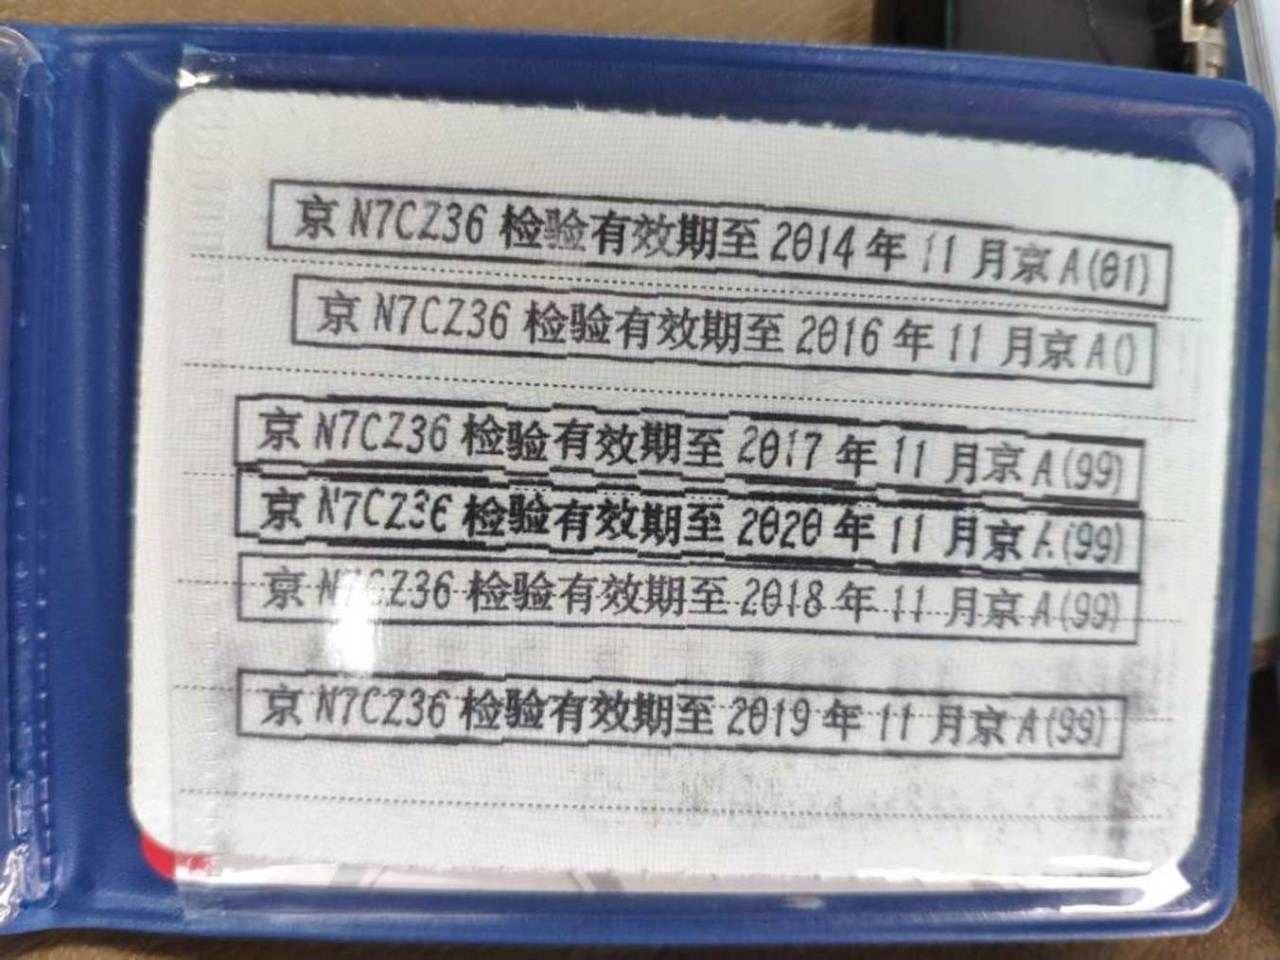 京N7CZ36检验有效期至2014年11月京A(01)
京N7CZ36检验有效期至2016年11月京A()
京N7CZ36检验有效期至2017年11月京A(99)
京N7CZ36检验有效期至2020年11月京A(99)
京N7CZ36检验有效期至2018年11月京A(99)
京N7CZ36检验有效期至2019年11月京A(99)